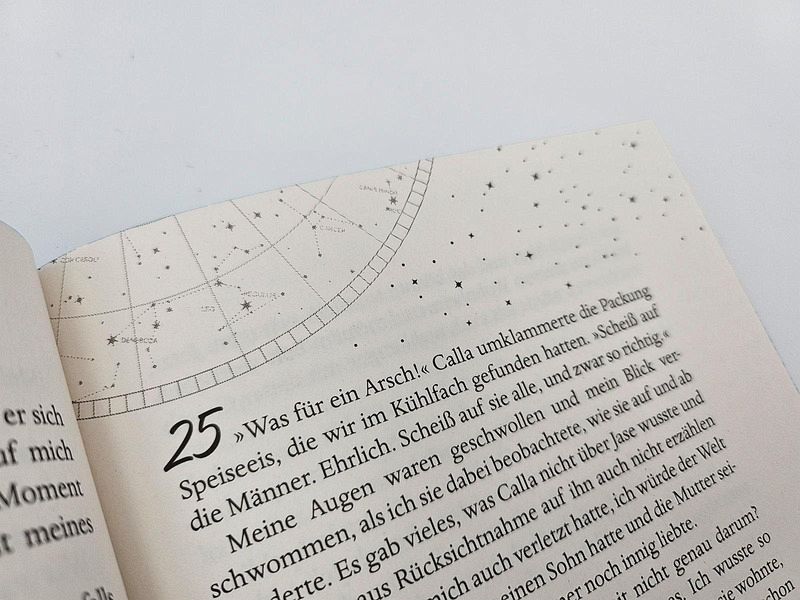 er sich
mich
Moment
meines
REGULUS
LEO
DENEBOLA
CANCER
CANIS MINOR
25
»Was für ein Arsch!« Calla umklammerte die Packung
Speiseeis, die wir im Kühlfach gefunden hatten. »Scheiß auf
die Männer. Ehrlich. Scheiß auf sie alle, und zwar so richtig.«
Meine Augen waren geschwollen und mein Blick ver-
schwommen, als ich sie dabei beobachtete, wie sie auf und ab
derte. Es gab vieles, was Calla nicht über Jase wusste und
aus Rücksichtnahme auf ihn auch nicht erzählen
mich auch verletzt hatte, ich würde der Welt
einen Sohn hatte und die Mutter sei-
er noch innig liebte.
nicht genau darum?
Ich wusste so
sie wohnte,
schon